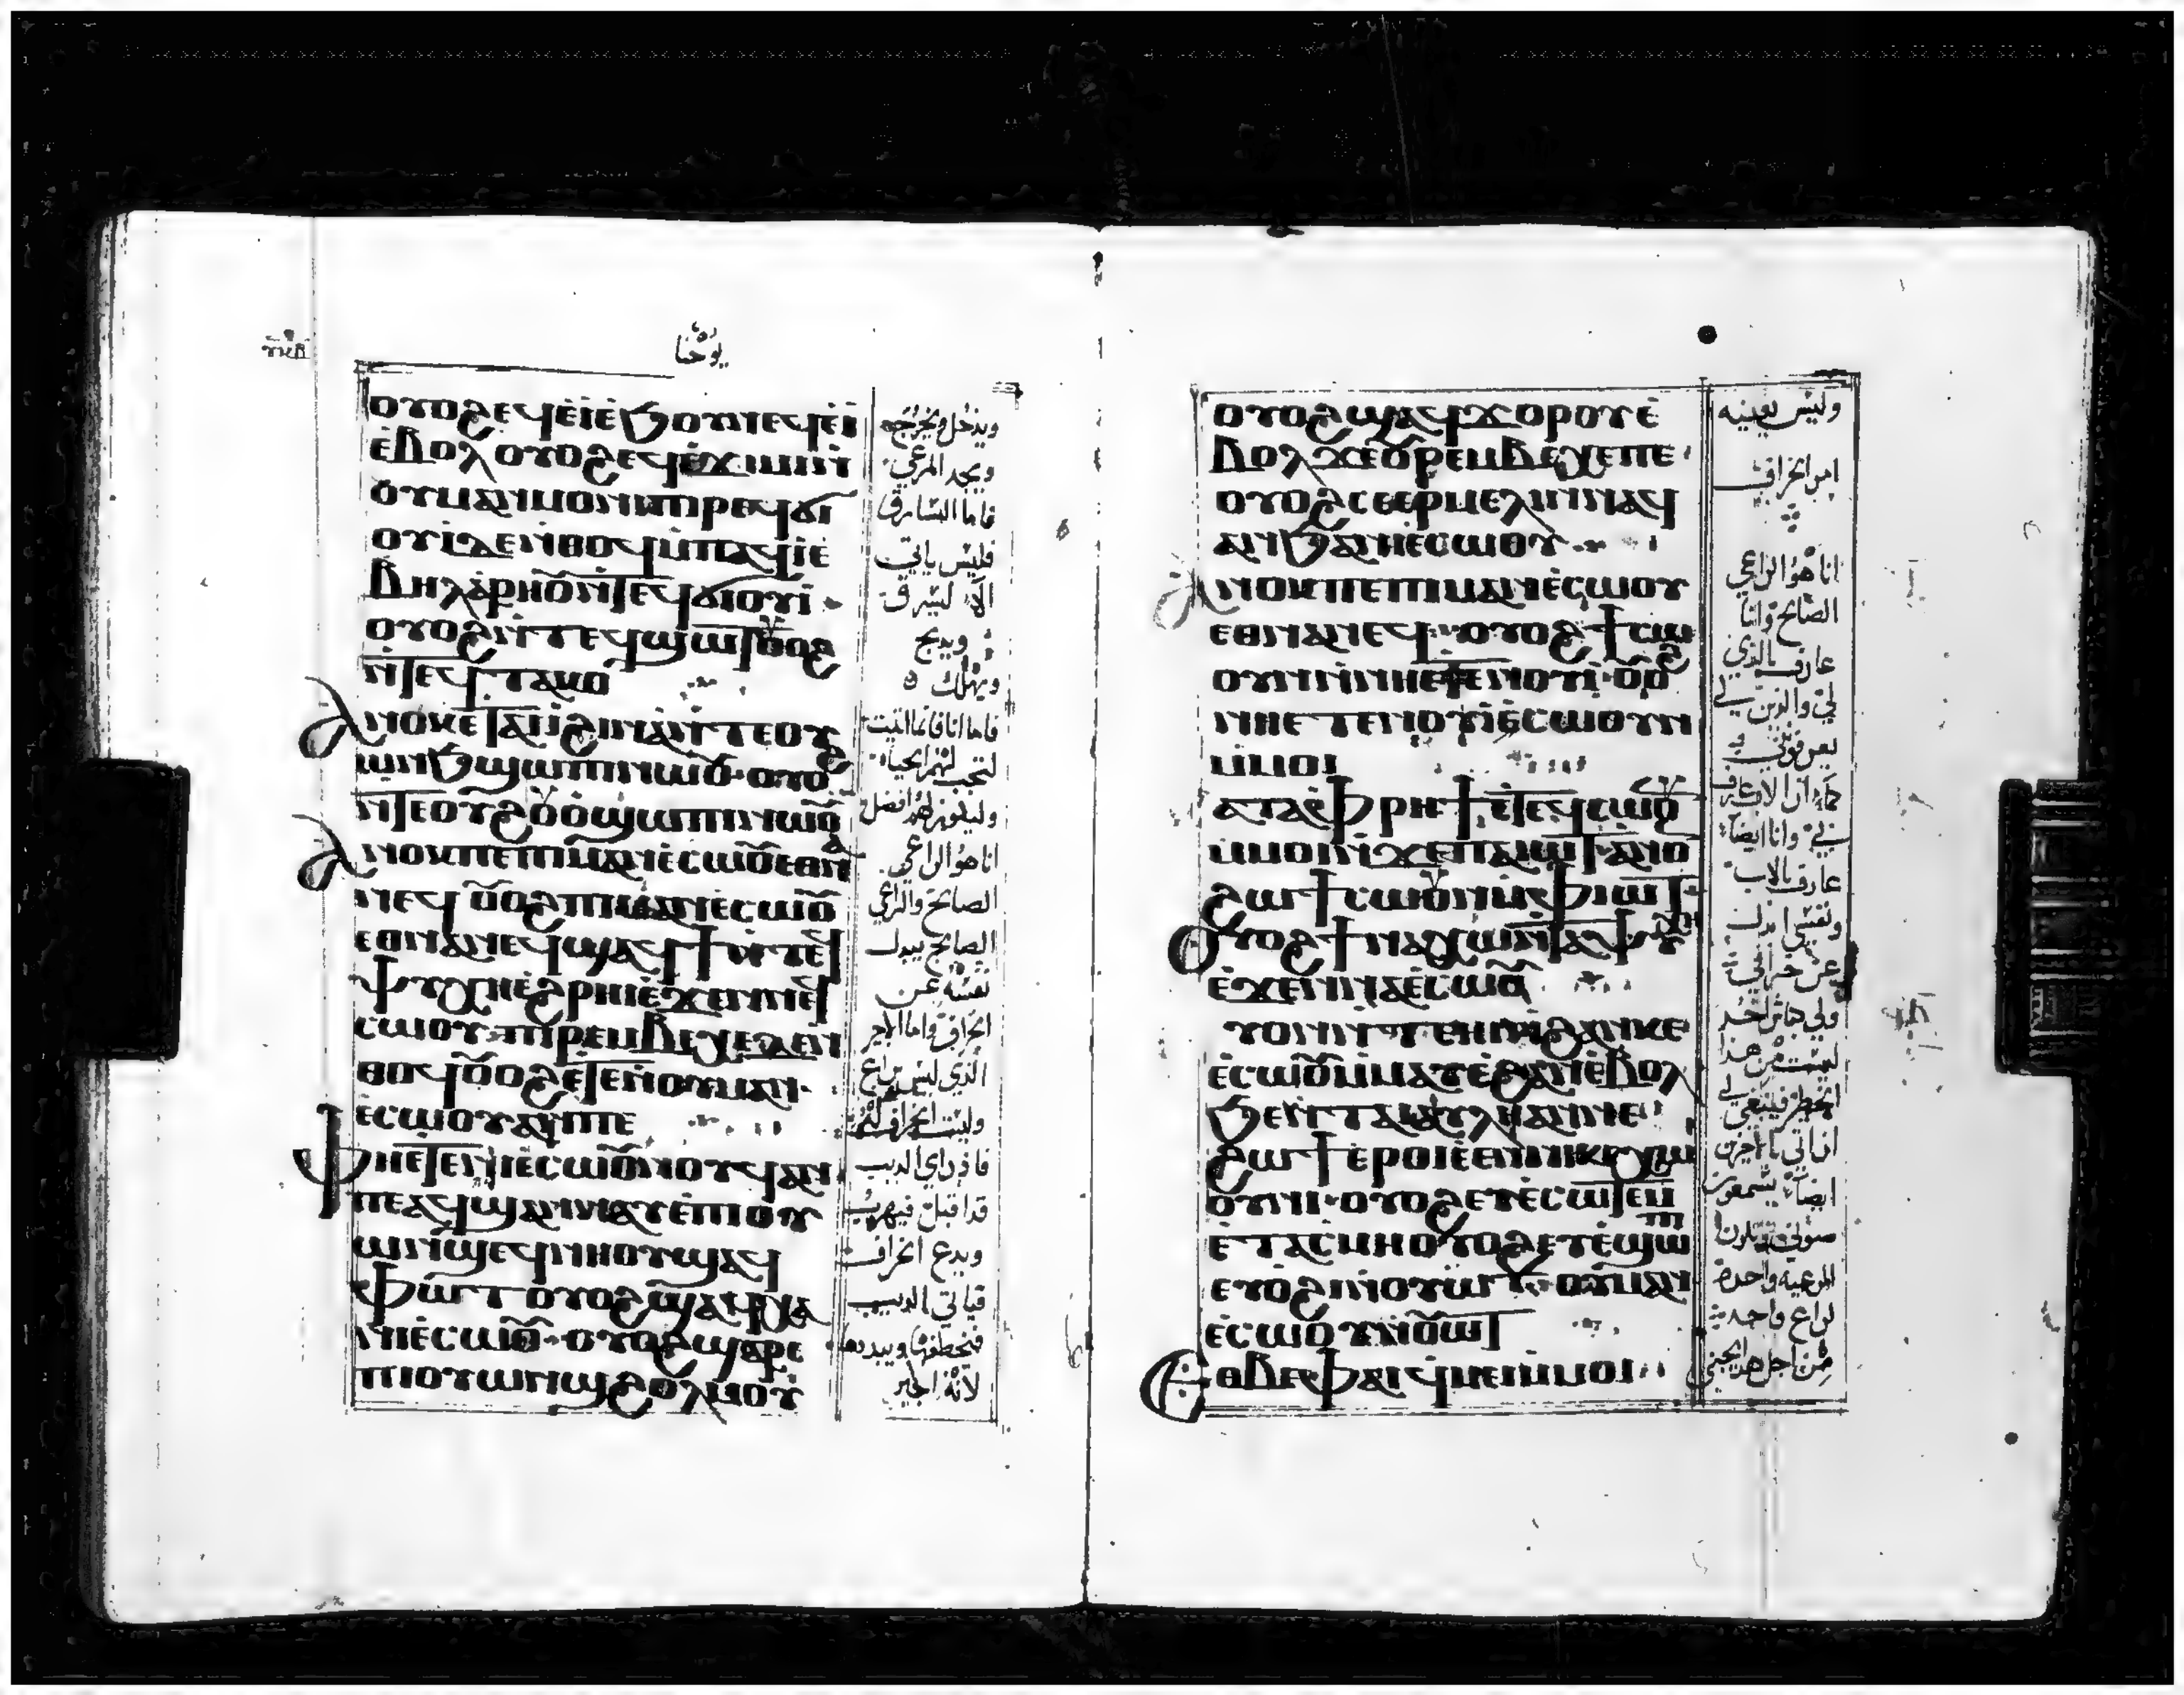 يوحنا
ⲟⲩⲟϩ ⲉϥⲉ̀ⲓⲉ̀ϧⲟⲩⲛ ⲉϥⲉ̀ⲓ
ⲉ̀ⲃⲟⲗ ⲟⲩⲟϩ ⲉϥⲉ̀ϫⲓⲙⲓ ⲛ̀
ⲟⲩⲙⲁⲛ̀ⲙⲟⲛⲓ ⲡⲓⲣⲉϥϭⲓ
ⲟⲩⲓ̀ ⲇⲉ ⲛ̀ⲑⲟϥ ⲙ̀ⲡⲁϥⲓ̀ ⲉ̀
ⲃⲏⲗ ⲁ̀ⲣⲏⲟⲩ ⲛ̀ⲧⲉϥϭⲓⲟⲩⲓ̀
ⲟⲩⲟϩ ⲛ̀ⲧⲉϥϣⲱⲧ ⲟⲩⲟϩ
ⲛ̀ⲧⲉϥⲧⲁⲕⲟ
ⲁⲛⲟⲕ ⲉⲧⲁⲓⲓ̀ ϩⲓⲛⲁ ⲛ̀ⲧⲉ ⲟⲩ
ⲱⲛϧ ϣⲱⲡⲓ ⲛⲱⲟⲩ ⲟⲩⲟϩ
ⲛ̀ⲧⲉ ⲟⲩϩⲟⲩⲟ̀ ϣⲱⲡⲓ ⲛⲱⲟⲩ
ⲁⲛⲟⲕ ⲡⲉ ⲡⲓⲙⲁⲛⲉ̀ⲥⲱⲟⲩ ⲉⲑⲛⲁ
ⲛⲉϥ ⲟⲩⲟϩ ⲡⲓⲙⲁⲛⲉ̀ⲥⲱⲟⲩ
ⲉⲑⲛⲁⲛⲉϥ ϣⲁϥϯ ⲛ̀ⲧⲉϥ
ⲯⲩⲭⲏ ⲉ̀ϩⲣⲏⲓ ⲉ̀ϫⲉⲛ ⲛⲉϥ
ⲥⲱⲟⲩ ⲡⲓⲣⲉⲙⲃⲉⲭⲉ ⲇⲉ ⲛ̀
ⲑⲟϥ ⲟⲩⲟϩ ⲉ̀ⲧⲉ ⲛⲟⲩⲙⲁⲛ
ⲉ̀ⲥⲱⲟⲩ ⲁⲛ ⲡⲉ
ⲫⲏ ⲉ̀ⲧⲉ ⲛⲓⲉ̀ⲥⲱⲟⲩ ⲛⲟⲩϥ ⲁⲛ
ⲡⲉ ⲁϥϣⲁⲛⲛⲁⲩ ⲉ̀ⲡⲓⲟⲩ
ⲱⲛϣ ⲉϥⲛⲏⲟⲩ ϣⲁϥ
ⲫⲱⲧ ⲟⲩⲟϩ ϣⲁϥⲭⲁ
ⲛⲓⲉ̀ⲥⲱⲟⲩ ⲟⲩⲟϩ ϣⲁⲣⲉ
ⲡⲓⲟⲩⲱⲛϣ ϩⲟⲗⲙⲟⲩ
ويدخل ويخرج
ويجد المرعي
فاما السارق
فليس ياتي
الا ليسرق
ويذبح
ويهلك
فاما انا فانما اتيت
لتجب لهم الحياة
وليكون لهم افضل
انا هو الراعي
الصالح والراعي
الصالح يبدل
نفسه عن
الخراف واما الاجير
الذي ليس براع
وليست الخراف له
فاذا راي الديب
قد اقبل فيهرب
ويدع الخراف
فياتي الديب
فيخطفها ويبددها
لانه اجير
ⲟⲩⲟϩ ϣⲁϥϫⲟⲣⲟⲩ ⲉ̀
ⲃⲟⲗ ϫⲉ ⲟⲩⲣⲉⲙⲃⲉⲭⲉ ⲡⲉ
ⲟⲩⲟϩ ⲥⲉⲣⲙⲉⲗⲓⲛ ⲛⲁϥ
ⲁⲛ ϧⲁ ⲛⲓⲉ̀ⲥⲱⲟⲩ
ⲁⲛⲟⲕ ⲡⲉ ⲡⲓⲙⲁⲛⲉ̀ⲥⲱⲟⲩ
ⲉⲑⲛⲁⲛⲉϥ ⲟⲩⲟϩ ϯⲥⲱ
ⲟⲩⲛ ⲛ̀ⲛⲏⲉⲧⲉⲛⲟⲩⲓ ⲟⲩⲟϩ
ⲛⲏⲉⲧⲉⲛⲟⲩⲓ̀ ⲥⲉⲥⲱⲟⲩⲛ
ⲙ̀ⲙⲟⲓ
ⲕⲁⲧⲁ ⲫⲣⲏϯ ⲉ̀ⲧⲉϥⲥⲱⲟⲩⲛ
ⲙ̀ⲙⲟⲓ ⲛ̀ϫⲉ ⲡⲁⲓⲱⲧ ⲁⲛⲟⲕ
ϩⲱ ϯⲥⲱⲟⲩⲛ ⲙ̀ⲫⲓⲱⲧ
ⲟⲩⲟϩ ϯⲛⲁⲭⲱ ⲛ̀ⲧⲁⲯⲩⲭⲏ
ⲉ̀ϫⲉⲛ ⲛⲁⲉ̀ⲥⲱⲟⲩ
ⲟⲩⲟⲛ ⲛ̀ⲧⲏⲓ ⲛ̀ϩⲁⲛⲕⲉ
ⲉ̀ⲥⲱⲟⲩ ⲙ̀ⲙⲁⲩ ⲉ̀ϩⲁⲛⲉ̀ⲃⲟⲗ
ϧⲉⲛ ⲧⲁⲓⲁⲩⲗⲏ ⲁⲛ ⲛⲉ
ϩⲱϯ ⲉⲣⲟⲓ ⲉ̀ⲉⲛ ⲛⲓⲕⲉⲭⲱ
ⲟⲩⲛⲓ ⲟⲩⲟϩ ⲉⲩⲉ̀ⲥⲱⲧⲉⲙ
ⲉ̀ⲧⲁⲥⲙⲏ ⲟⲩⲟϩ ⲉⲩⲉ̀ϣⲱⲡⲓ
ⲉⲩⲟ̀ϩⲓ ⲛ̀ⲟⲩⲱⲧ ⲟⲩⲙⲁⲛ
ⲉ̀ⲥⲱⲟⲩ ⲛ̀ⲟⲩⲱⲧ
ⲉⲑⲃⲉ ⲫⲁⲓ ϥⲙⲉⲓ ⲙ̀ⲙⲟⲓ
وليس يعينه
امر الخراف
انا هو الراعي
الصالح وانا
عارف بالذي
لي والذين لي
يعرفوني
كما ان الاب عارف
بي وانا ايضا
عارف بالاب
ونفسي ابدل
عن خرافي
ولي كباش اخر
ليست من هذا
الحظير فينبغي لي
ان اتي بالاخرين
ايضا يسمعون
صوتي وتكون
الرعية واحدة
لراع واحد
من اجل هذا يحبني